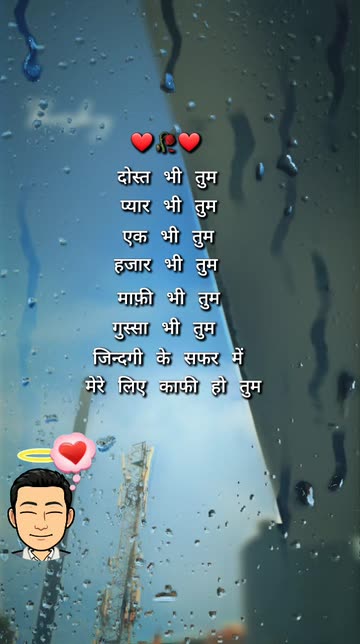 ❤️🥀❤️
दोस्त भी तुम
प्यार भी तुम
एक भी तुम
हजार भी तुम
माफ़ी भी तुम
गुस्सा भी तुम
जिन्दगी के सफर में
मेरे लिए काफी हो तुम